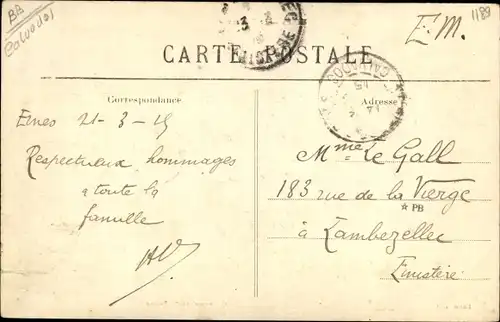 BB
Calvados
E.M.
1189
CARTE POSTALE
Correspondance
Adresse
21-3-15
Respectueux hommages
a toute la
famille
Mme Le Gall
183 rue de la Vierge
* PB
à Lambezellec
Finistère